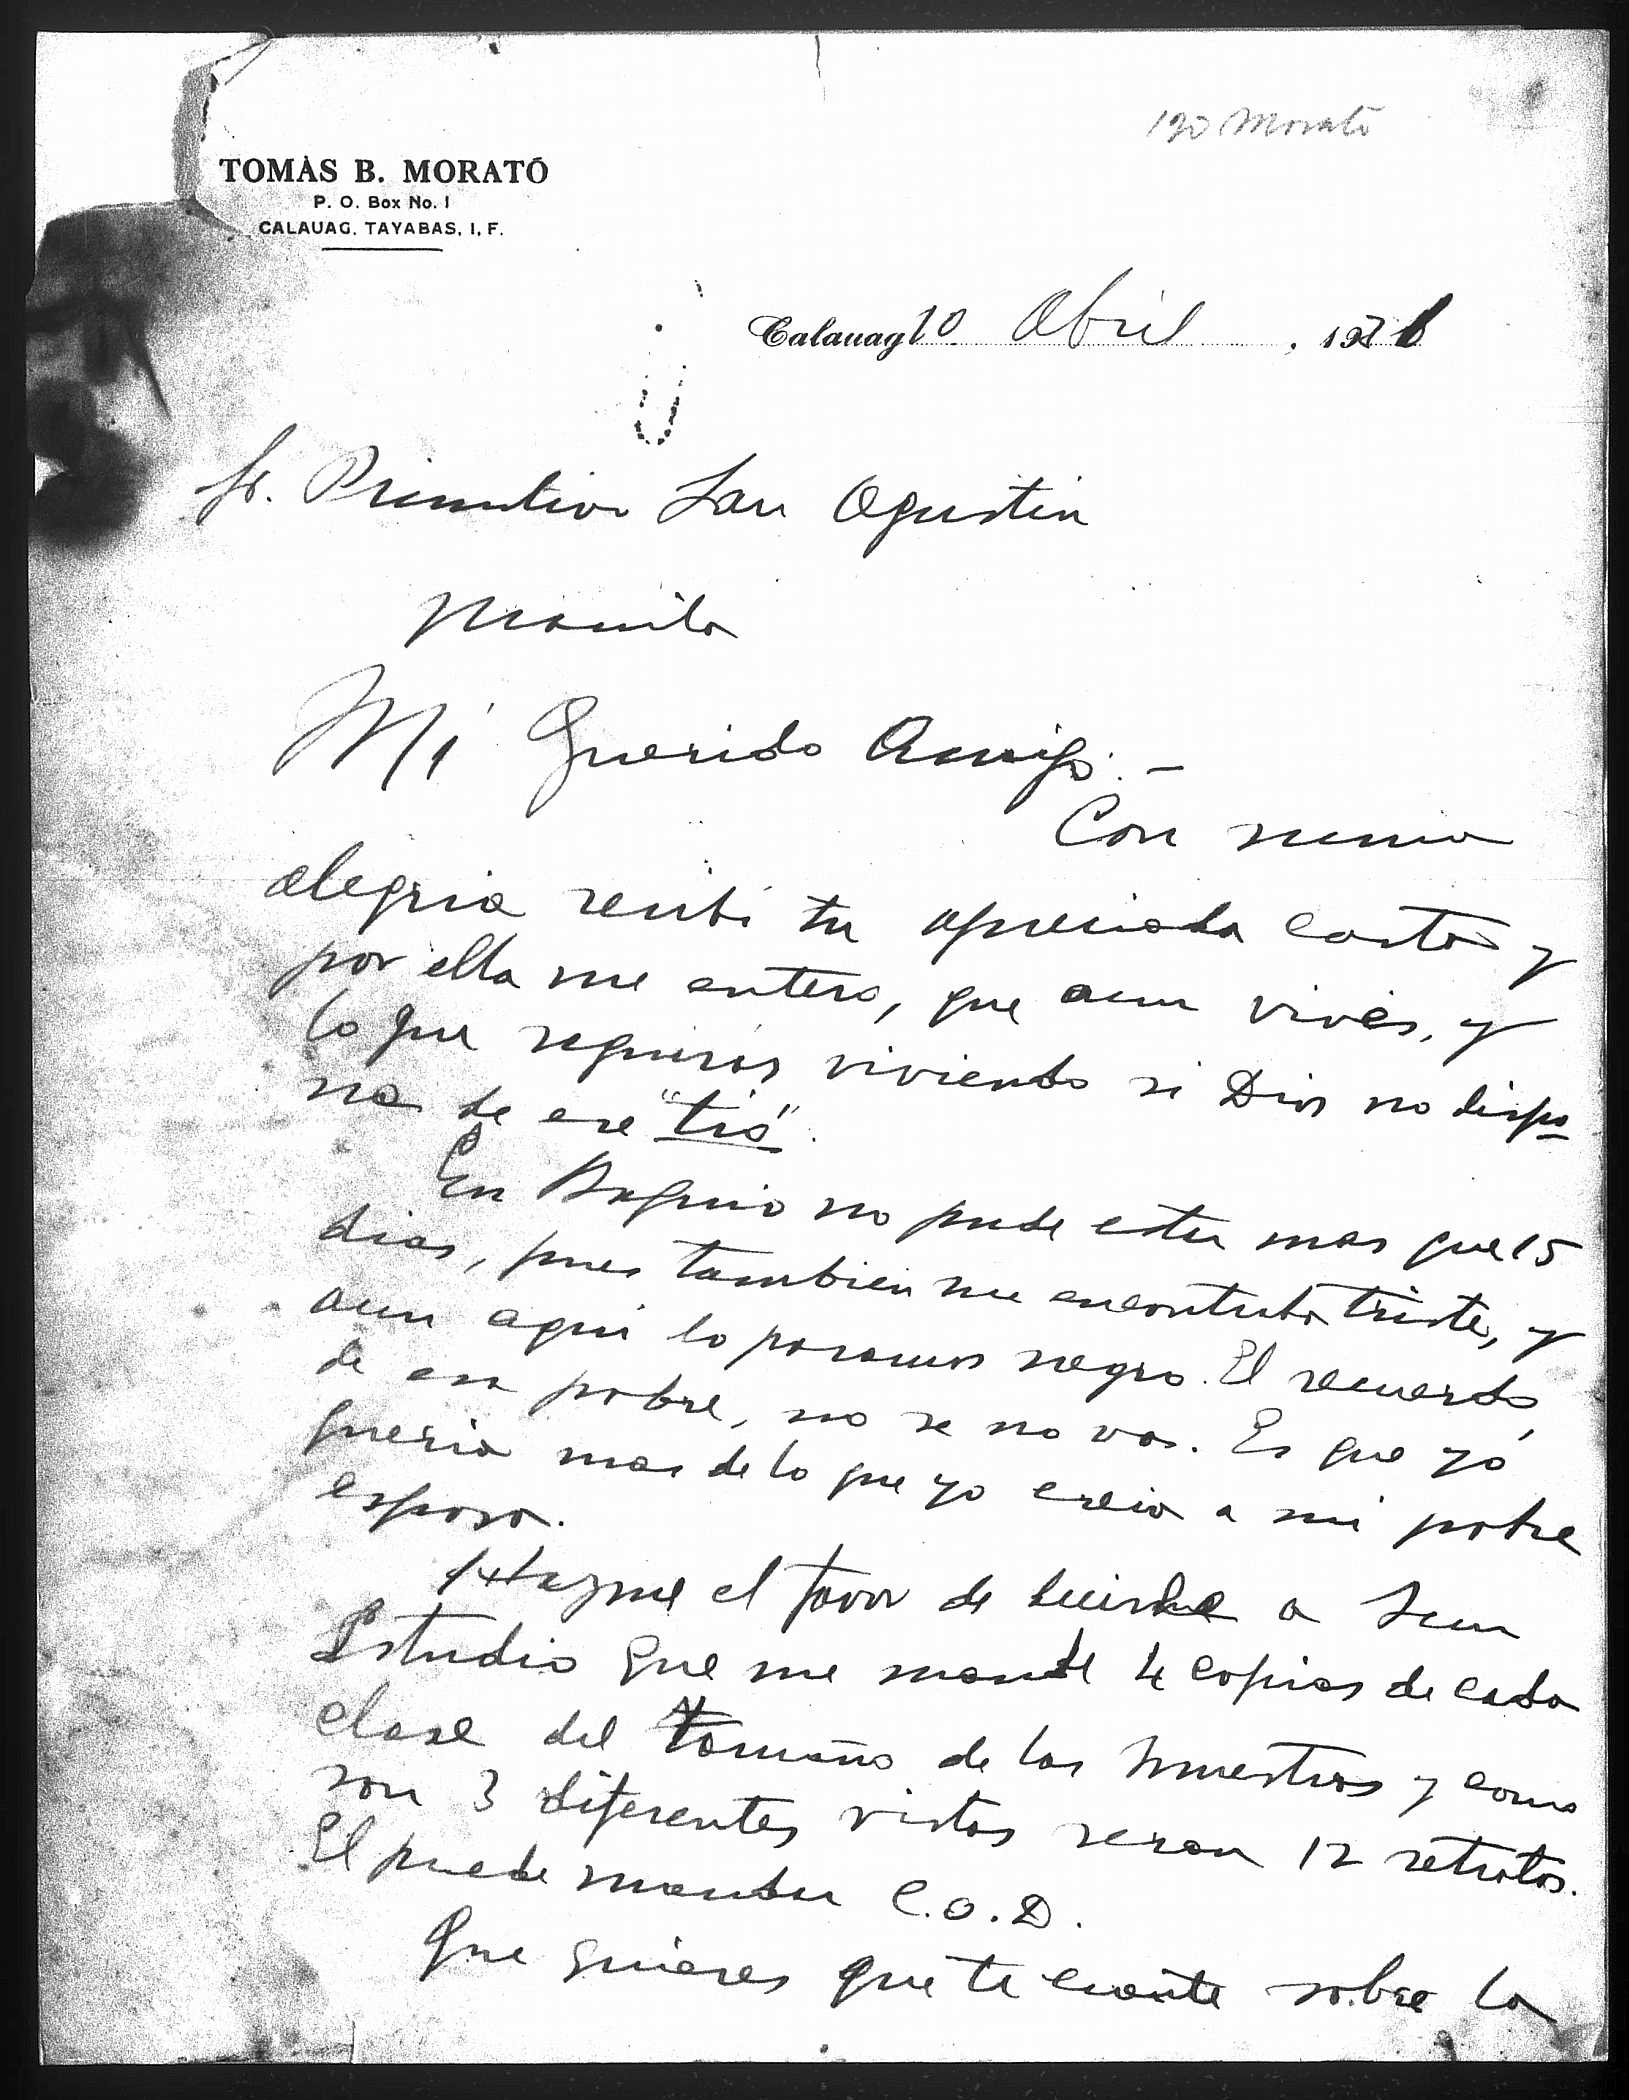 120 Morató
TOMÀS B. MORATÓ
P. O. Box No. 1
CALAUAG, TAYABAS, I. F.
Calauag 10 Abril , 1931
Sr. Primitivo San Agustin
Manila
Mi Querido Amigo:-
Con suma
alegria recibi tu apreciada carta y
por ella me entero, que aun vives, y
lo que seguiras viviendo si Dios no dispo-
ne de ese "tio".
En Baguio no pude estar mas que 15
dias, pues tambien me encontraba triste, y
aun aqui lo pasamos negro. El recuerdo
de esa pobre, no se nos va. Es que yó
queria mas de lo que yo creia a mi pobre
esposa.
Hazme el favor de decirle a Sun
Estudio que me mande 4 copias de cada
clase del tamaño de las muestras y como
son 3 diferentes vistas seran 12 retratos.
El puede mandar C.O.D.
Que quieres que te cuente sobre la